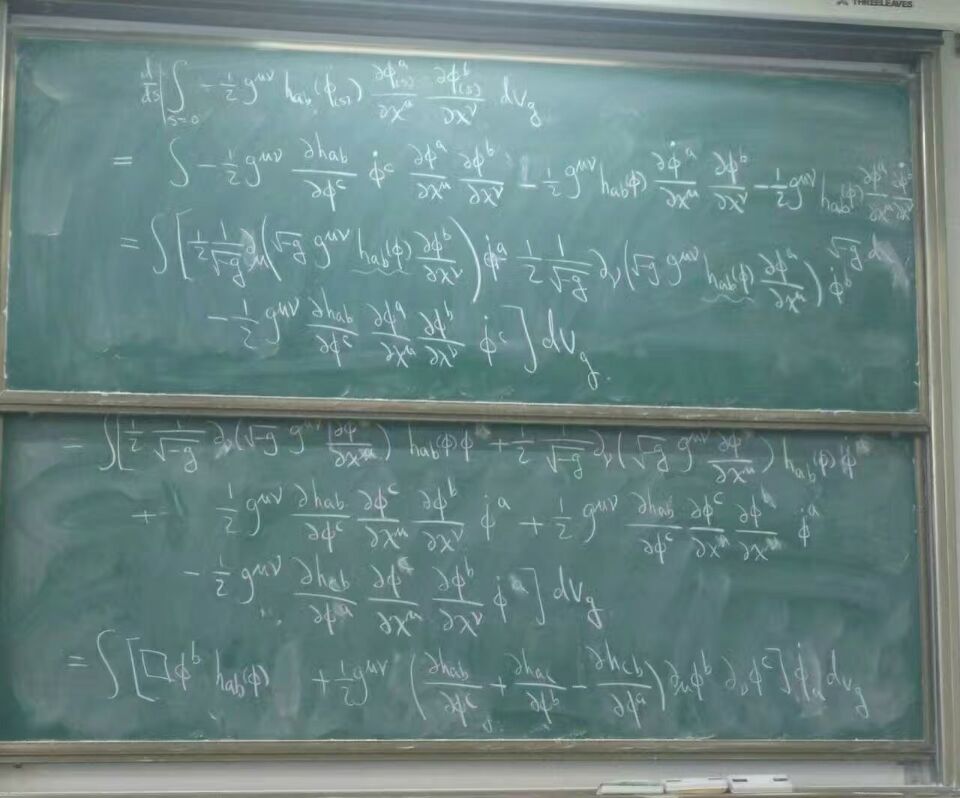 THREELEAVES
d/ds|_{s=0} ∫ -1/2 g^{μν} h_{ab}(ϕ_{(s)}) ∂ϕ^a_{(s)}/∂x^μ ∂ϕ^b_{(s)}/∂x^ν dv_g
= ∫ -1/2 g^{μν} ∂h_{ab}/∂ϕ^c ϕ̇^c ∂ϕ^a/∂x^μ ∂ϕ^b/∂x^ν - 1/2 g^{μν} h_{ab}(ϕ) ∂ϕ̇^a/∂x^μ ∂ϕ^b/∂x^ν - 1/2 g^{μν} h_{ab}(ϕ) ∂ϕ^a/∂x^μ ∂ϕ̇^b/∂x^ν
√-g d
= ∫ [ 1/2 1/√-g ∂_μ (√-g g^{μν} h_{ab}(ϕ) ∂ϕ^b/∂x^ν) ϕ̇^a + 1/2 1/√-g ∂_ν (√-g g^{μν} h_{ab}(ϕ) ∂ϕ^a/∂x^μ) ϕ̇^b
- 1/2 g^{μν} ∂h_{ab}/∂ϕ^c ∂ϕ^a/∂x^μ ∂ϕ^b/∂x^b ϕ̇^c ] dv_g.
= ∫ [ 1/2 1/√-g ∂_ν (√-g g^{μν} ∂ϕ/∂x^μ) h_{ab}(ϕ) ϕ + 1/2 1/√-g ∂_ν (√-g g^{μν} ∂ϕ/∂x^μ) h_{ab}(ϕ) ϕ̇
+ 1/2 g^{μν} ∂h_{ab}/∂ϕ^c ∂ϕ^c/∂x^μ ∂ϕ^b/∂x^ν ϕ̇^a + 1/2 g^{μν} ∂h_{ab}/∂ϕ^c ∂ϕ^c/∂x^μ ∂ϕ^b/∂x^μ ϕ̇^a
- 1/2 g^{μν} ∂h_{cb}/∂ϕ^a ∂ϕ^c/∂x^μ ∂ϕ^b/∂x^ν ϕ̇^a ] dv_g
= ∫ [ □ϕ^b h_{ab}(ϕ) + 1/2 g^{μν} ( ∂h_{ab}/∂ϕ^c + ∂h_{ac}/∂ϕ^b - ∂h_{cb}/∂ϕ^a ) ∂_μϕ^b ∂_νϕ^c ] ϕ̇^a dv_g